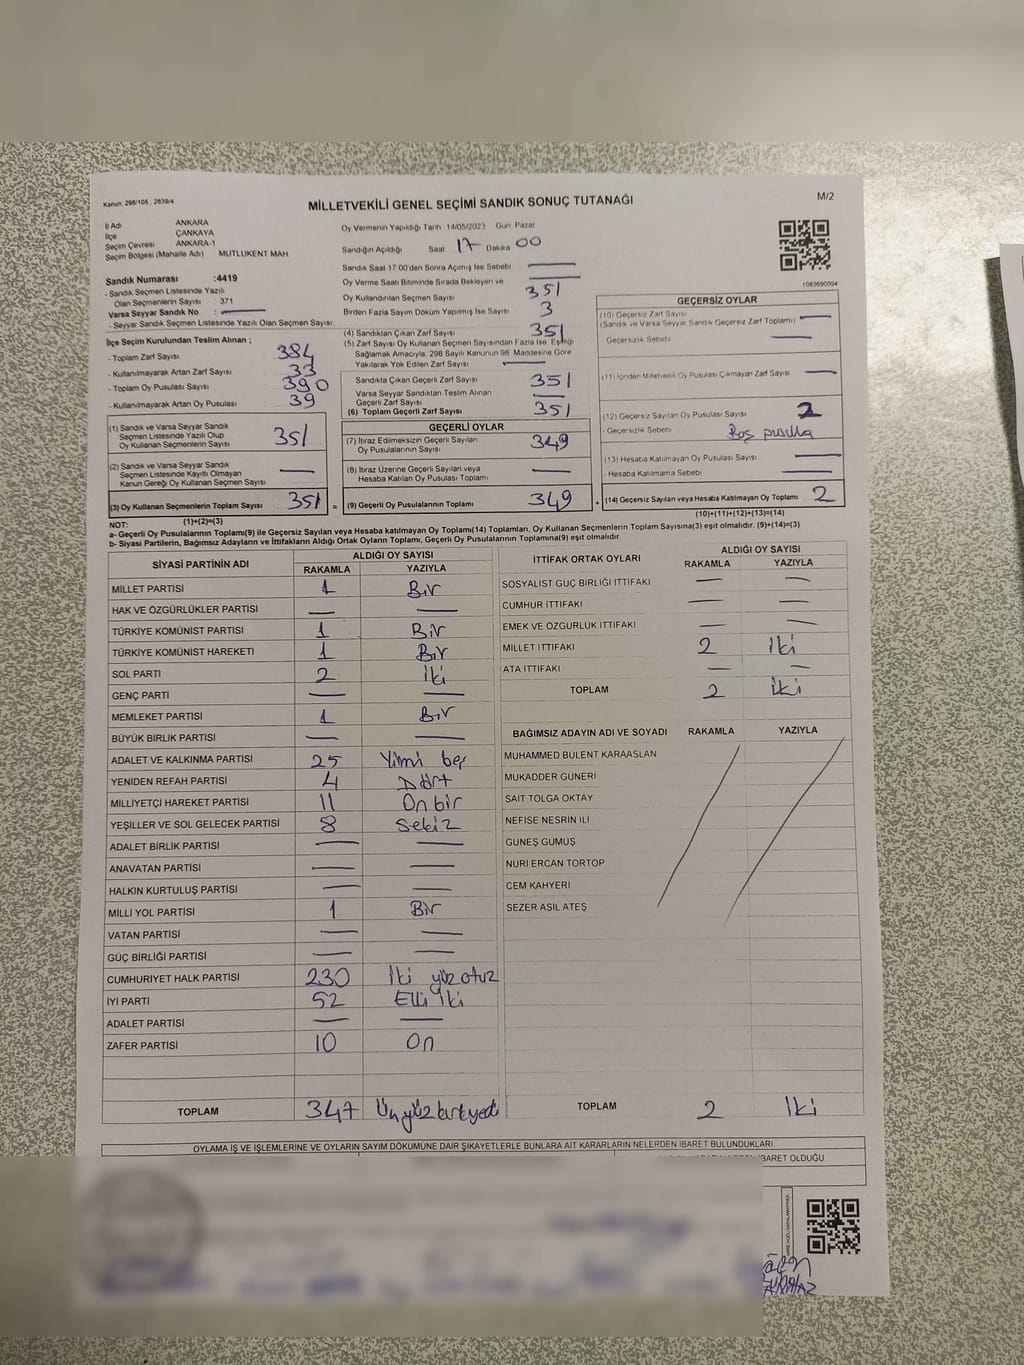 Kanun: 298/105 ; 2839/4
MİLLETVEKİLİ GENEL SEÇİMİ SANDIK SONUÇ TUTANAĞI
M/2
İl Adı ANKARA
İlçe ÇANKAYA
Seçim Çevresi ANKARA-1
Seçim Bölgesi (Mahalle Adı) MUTLUKENT MAH
Sandık Numarası :4419
- Sandık Seçmen Listesinde Yazılı
Olan Seçmenlerin Sayısı : 371
Varsa Seyyar Sandık No :
- Seyyar Sandık Seçmen Listesinde Yazılı Olan Seçmen Sayısı:
İlçe Seçim Kurulundan Teslim Alınan ;
- Toplam Zarf Sayısı 384
- Kullanılmayarak Artan Zarf Sayısı 33
- Toplam Oy Pusulası Sayısı 390
- Kullanılmayarak Artan Oy Pusulası 39
(1) Sandık ve Varsa Seyyar Sandık
Seçmen Listesinde Yazılı Olup
Oy Kullanan Seçmenlerin Sayısı 351
(2) Sandık ve Varsa Seyyar Sandık
Seçmen Listesinde Kayıtlı Olmayan
Kanun Gereği Oy Kullanan Seçmen Sayısı —
(3) Oy Kullanan Seçmenlerin Toplam Sayısı 351 =
(1)+(2)=(3)
Oy Vermenin Yapıldığı Tarih :14/05/2023 Gün: Pazar
Sandığın Açıldığı Saat 17 Dakika 00
Sandık Saat 17.00'den Sonra Açımış İse Sebebi —
Oy Verme Saati Bitiminde Sırada Bekleyen ve —
Oy Kullandırılan Seçmen Sayısı 351
Birden Fazla Sayım Döküm Yapılmış İse Sayısı 3
(4) Sandıktan Çıkan Zarf Sayısı 351
(5) Zarf Sayısı Oy Kullanan Seçmen Sayısından Fazla İse, Eşitliği
Sağlamak Amacıyla, 298 Sayılı Kanunun 98. Maddesine Göre
Yakılarak Yok Edilen Zarf Sayısı —
Sandıkta Çıkan Geçerli Zarf Sayısı 351
Varsa Seyyar Sandıktan Teslim Alınan
Geçerli Zarf Sayısı —
(6) Toplam Geçerli Zarf Sayısı 351
GEÇERLİ OYLAR
(7) İtiraz Edilmeksizin Geçerli Sayılan
Oy Pusulalarının Sayısı 349
(8) İtiraz Üzerine Geçerli Sayılan veya
Hesaba Katılan Oy Pusulası Toplamı —
(9) Geçerli Oy Pusulalarının Toplamı 349 +
1083690094
GEÇERSİZ OYLAR
(10) Geçersiz Zarf Sayısı
(Sandık ve Varsa Seyyar Sandık Geçersiz Zarf Toplamı) —
- Geçersizlik Sebebi —
(11) İçinden Milletvekili Oy Pusulası Çıkmayan Zarf Sayısı —
(12) Geçersiz Sayılan Oy Pusulası Sayısı 2
- Geçersizlik Sebebi Boş pusula
(13) Hesaba Katılmayan Oy Pusulası Sayısı —
- Hesaba Katılmama Sebebi —
(14) Geçersiz Sayılan veya Hesaba Katılmayan Oy Toplamı 2
(10)+(11)+(12)+(13)=(14)
NOT:
a- Geçerli Oy Pusulalarının Toplamı(9) ile Geçersiz Sayılan veya Hesaba katılmayan Oy Toplamı(14) Toplamları, Oy Kullanan Seçmenlerin Toplam Sayısına(3) eşit olmalıdır. (9)+(14)=(3)
b- Siyasi Partilerin, Bağımsız Adayların ve İttifakların Aldığı Ortak Oyların Toplamı, Geçerli Oy Pusulalarının Toplamına(9) eşit olmalıdır.
SİYASİ PARTİNİN ADI ALDIĞI OY SAYISI
RAKAMLA YAZIYLA
MİLLET PARTİSİ 1 Bir
HAK VE ÖZGÜRLÜKLER PARTİSİ — —
TÜRKİYE KOMÜNİST PARTİSİ 1 Bir
TÜRKİYE KOMÜNİST HAREKETİ 1 Bir
SOL PARTİ 2 İki
GENÇ PARTİ — —
MEMLEKET PARTİSİ 1 Bir
BÜYÜK BİRLİK PARTİSİ — —
ADALET VE KALKINMA PARTİSİ 25 Yirmi beş
YENİDEN REFAH PARTİSİ 4 Dört
MİLLİYETÇİ HAREKET PARTİSİ 11 On bir
YEŞİLLER VE SOL GELECEK PARTİSİ 8 Sekiz
ADALET BİRLİK PARTİSİ — —
ANAVATAN PARTİSİ — —
HALKIN KURTULUŞ PARTİSİ — —
MİLLİ YOL PARTİSİ 1 Bir
VATAN PARTİSİ — —
GÜÇ BİRLİĞİ PARTİSİ — —
CUMHURİYET HALK PARTİSİ 230 İki yüz otuz
İYİ PARTİ 52 Elli İki
ADALET PARTİSİ — —
ZAFER PARTİSİ 10 On
TOPLAM 347
İTTİFAK ORTAK OYLARI ALDIĞI OY SAYISI
RAKAMLA YAZIYLA
SOSYALİST GÜÇ BİRLİĞİ İTTİFAKI — —
CUMHUR İTTİFAKI — —
EMEK VE ÖZGÜRLÜK İTTİFAKI — —
MİLLET İTTİFAKI 2 İki
ATA İTTİFAKI — —
TOPLAM 2 İki
BAĞIMSIZ ADAYIN ADI VE SOYADI RAKAMLA YAZIYLA
MUHAMMED BÜLENT KARAASLAN
MUKADDER GÜNERİ
SAİT TOLGA OKTAY
NEFİSE NESRİN İLİ
GÜNEŞ GÜMÜŞ
NURİ ERCAN TORTOP
CEM KAHYERİ
SEZER ASİL ATEŞ
TOPLAM 2 İki
OYLAMA İŞ VE İŞLEMLERİNE VE OYLARIN SAYIM DÖKÜMÜNE DAİR ŞİKAYETLERLE BUNLARA AİT KARARLARIN NELERDEN İBARET BULUNDUKLARI
İBARET OLDUĞU